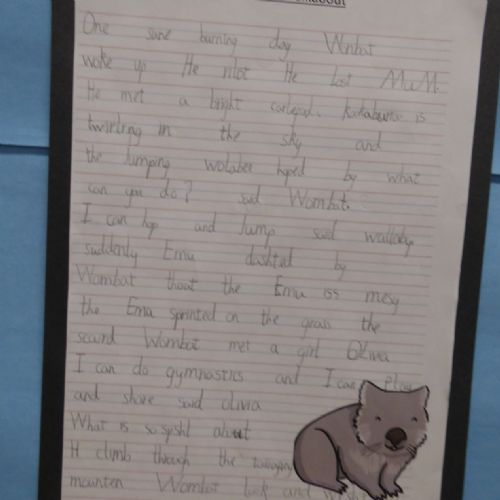 One sune burning day Wombat
woke up He He Lost MuM.
He met a bright Kookaburra is
twirling in the sky and
the Jumping hoped by what
can you do? said Wombat.
I can hop and Jump said wallaby
suddenly Emu dashted by
Wombat thout the Emu iss mesy
the Emu sprinted on the grass the
scaird Wombat met a girl Olivia
I can do gymnastics and I can Play
and shore said olivia
What is so speshl about
H climb through the
mounten Wombat look and